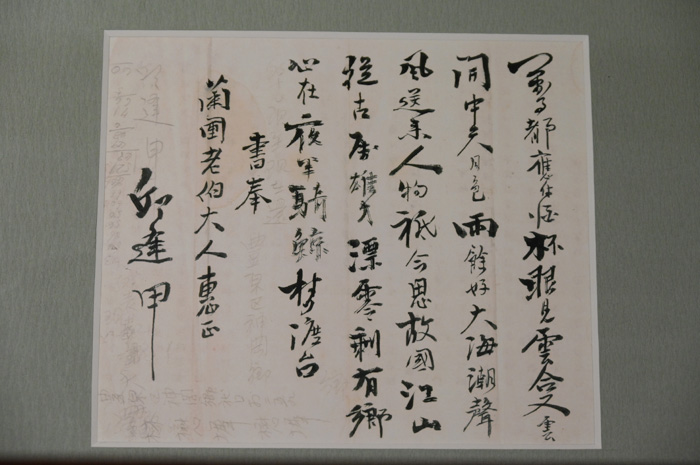 萬事都應付酒杯眼見雲合又雲
開中天月色雨餘好大海潮聲
風送來人物祇今思故國江山
從古屬雄才漂零剩有鄉
心在夜半騎鯨梦渡台
書奉
蘭圃老伯大人惠正
邱逢甲